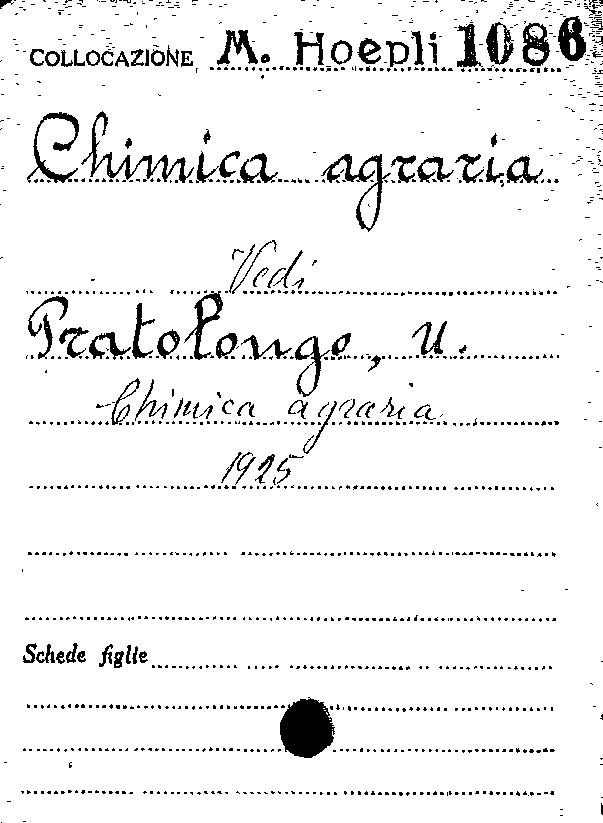 COLLOCAZIONE M. Hoepli 1086
Chimica agraria
Vedi
Pratolongo, U.
Chimica agraria
1925
Schede figlie